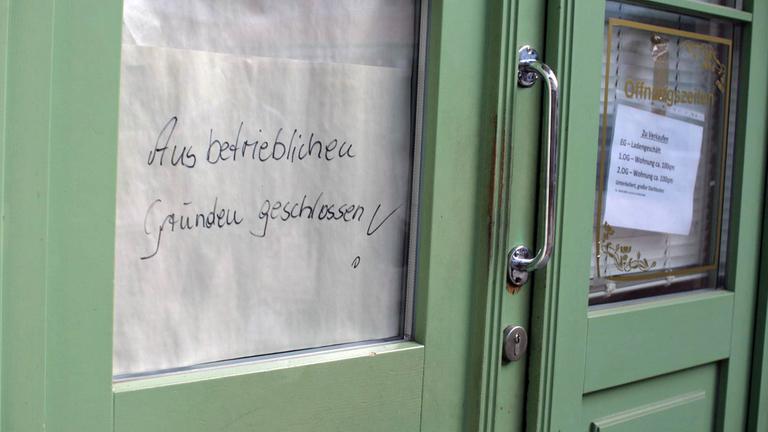 Aus betrieblichen
Gründen geschlossen!
Öffnungszeiten
Zu Verkaufen
EG – Ladengeschäft
1.OG – Wohnung ca. 100qm
2.OG – Wohnung ca. 100qm
Unterkellert, großer Dachboden